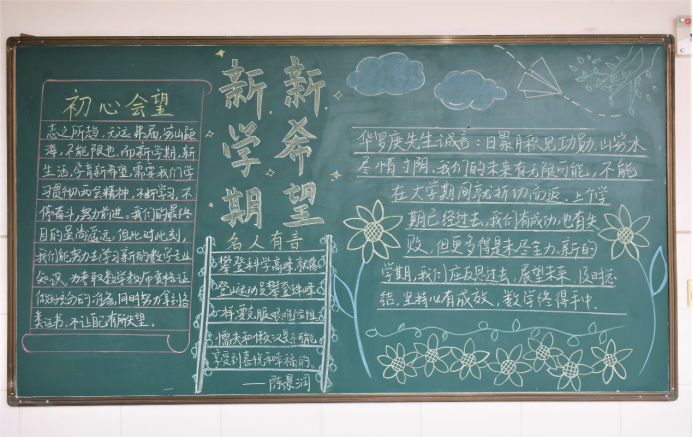 初心会望
志之所趋,无远弗届,穷山距
海,不能限也。而新学期,新
生活,孕育新希望,需要我们学
习贯彻两会精神,不断学习,不
停奋斗,努力前进。我们的最终
目的虽尚遥远,但此时此刻,
我们能努力去学习新的数学专业
知识,为考取数学教师资格证
做好充分的准备,同时努力拿到各
类证书,不让自己有所失望。
新学期
新希望
名人有音
攀登科学高峰,就像
登山运动员攀登珠峰
一样,要克服艰难险阻
懦夫和懒汉是不可能
享受到喜悦和幸福的
——陈景润
华罗庚先生诚言:日累月积见功勋,山穷水
尽惜寸阴。我们的未来有无限可能,不能
在大学期间就折功而返。上个学
期已经过去,我们有成功,也有失
败,但更多得是未尽全力,新的
学期,我们应反思过去,展望未来,及时总
结,坚持心有成放,数学终得手中.